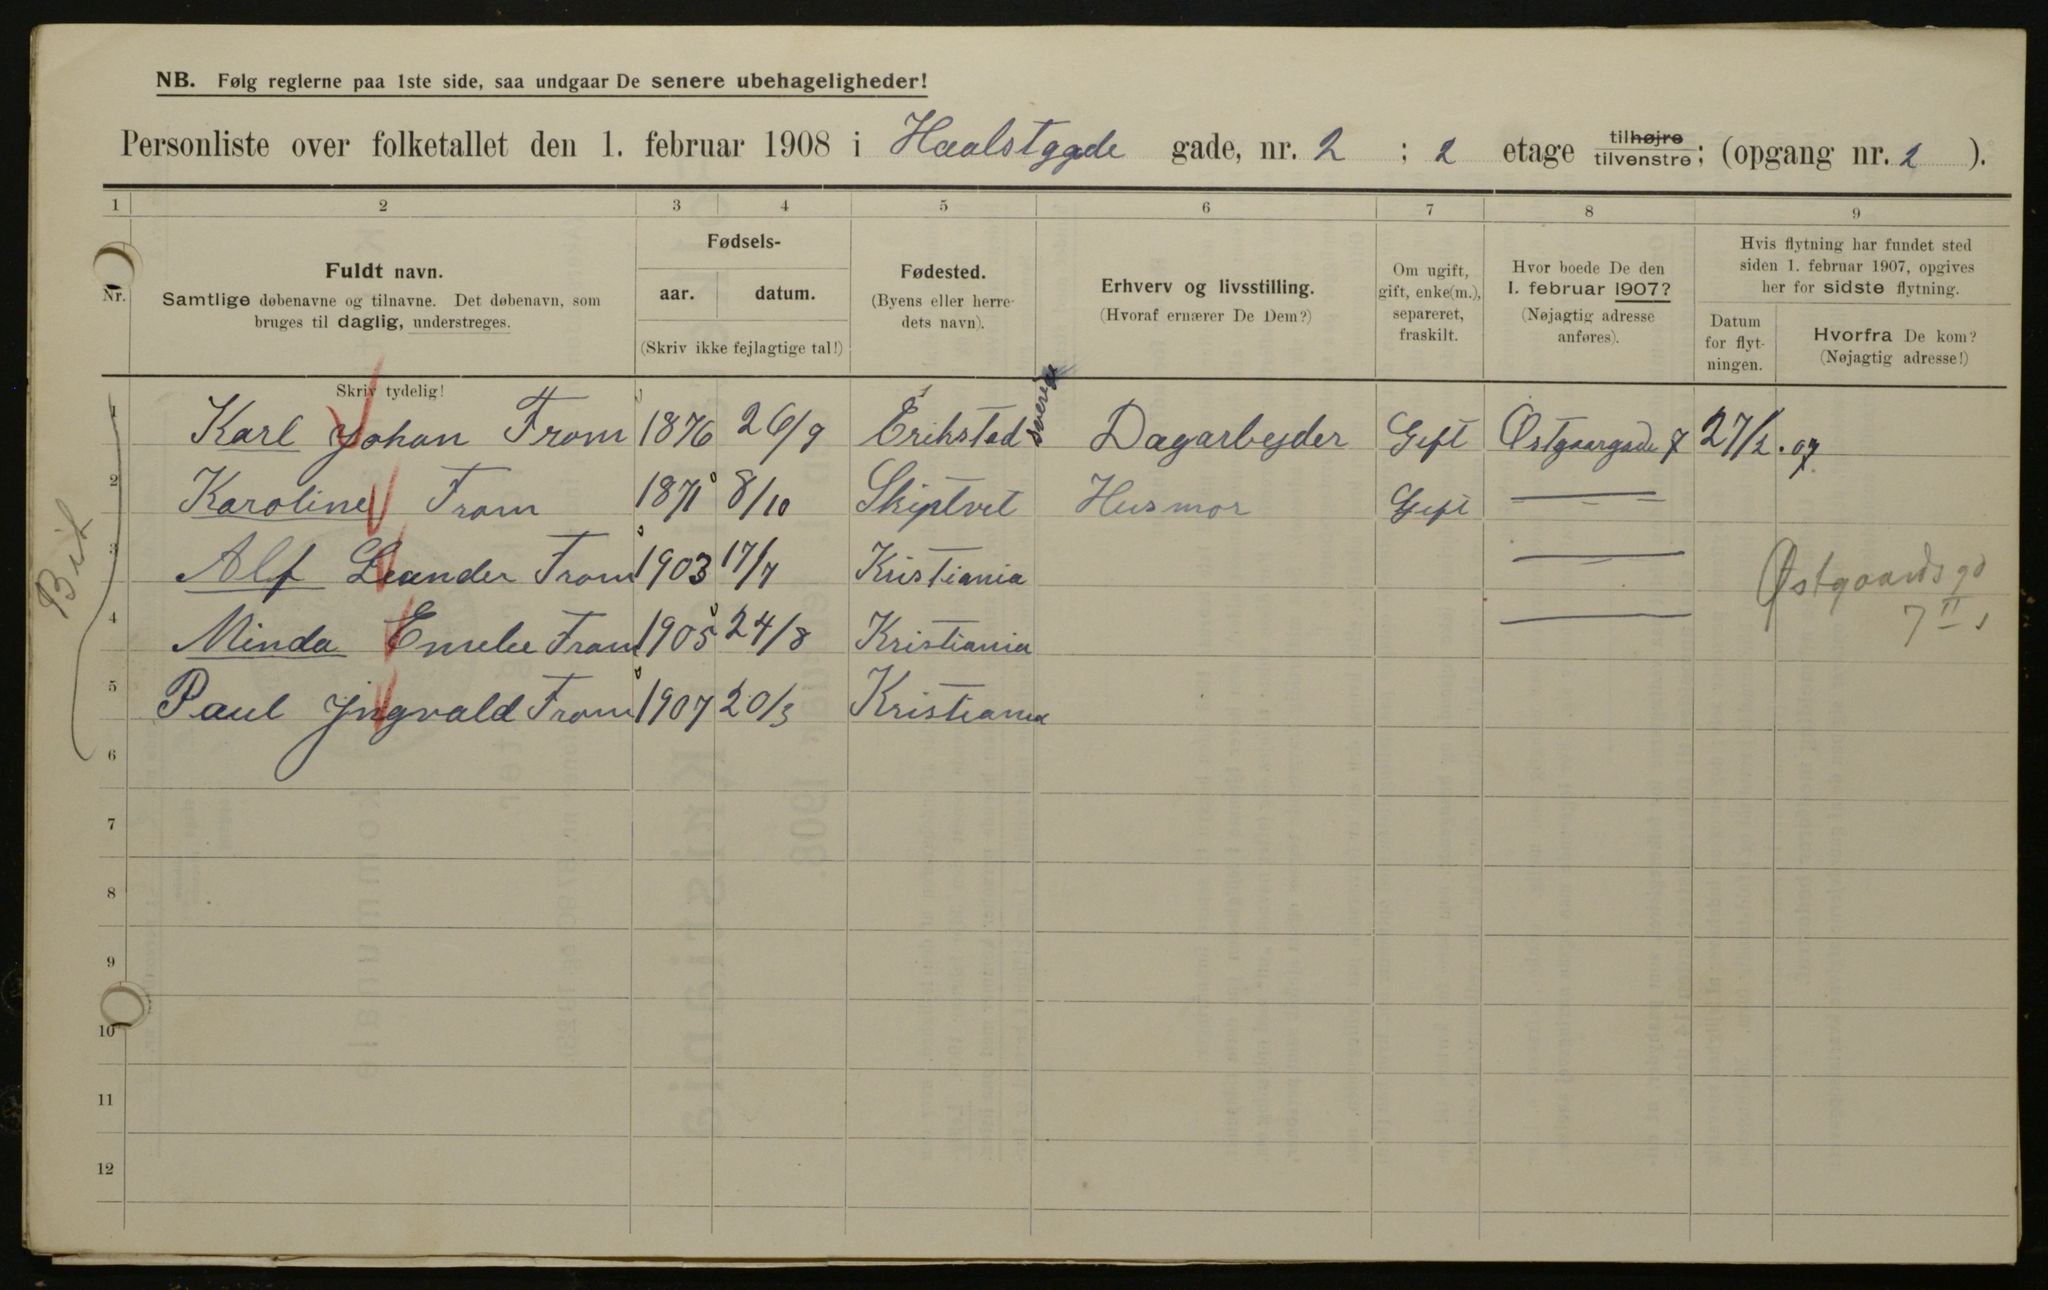 NB. Følg reglerne paa 1ste side, saa undgaar De senere ubehageligheder!
Personliste over folketallet den 1. februar 1908 i Haalstggde gade, nr. 2 ; 2 etage tilhøjre tilvenstre; (opgang nr. 2 ).
1 2 3 4 5 6 7 8 9
Nr.
Fuldt navn.
Samtlige døbenavne og tilnavne. Det døbenavn, som
bruges til daglig, understreges.
Skriv tydelig!
Fødsels-
aar. datum.
(Skriv ikke fejlagtige tal!)
Fødested.
(Byens eller herre-
dets navn).
Erhverv og livsstilling.
(Hvoraf ernærer De Dem?)
Om ugift,
gift, enke(m.),
separeret,
fraskilt.
Hvor boede De den
1. februar 1907?
(Nøjagtig adresse
anføres).
Hvis flytning har fundet sted
siden 1. februar 1907, opgives
her for sidste flytning.
Datum
for flyt-
ningen.
Hvorfra De kom?
(Nøjagtig adresse!)
1 Karl Johan From 1876 26/9 Erikstad Dagarbejder Gift Østgaargade 7 27/2.07
2 Karoline From 1871 8/10 Skiptvet Husmor Gift — " —
3 Alf Leander From 1903 17/7 Kristiania — " —
Østgaards gd
7 II
4 Minda Emelie From 1905 24/8 Kristiania
5 Paul Yngvald From 1907 20/3 Kristiania
6
7
8
9
10
11
12